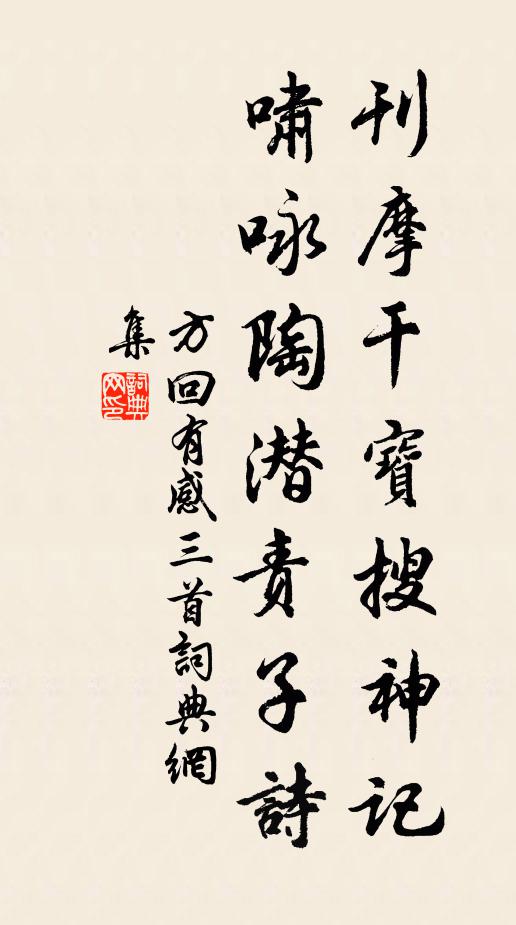 刊摩干寶搜神記
嘯咏陶潛責子詩
方回有感三首詞典網
集
詞典网印